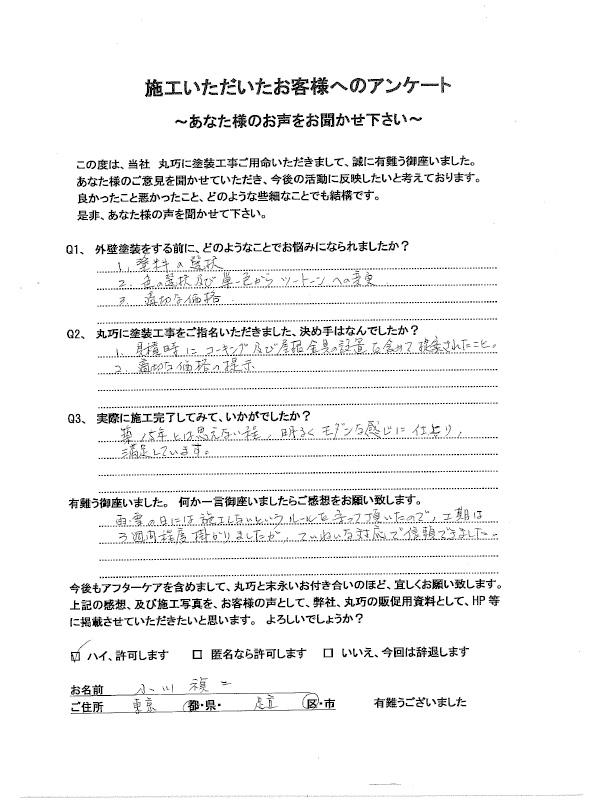 施工いただいたお客様へのアンケート
～あなた様のお声をお聞かせ下さい～
この度は、当社　丸巧に塗装工事ご用命いただきまして、誠に有難う御座いました。
あなた様のご意見を聞かせていただき、今後の活動に反映したいと考えております。
良かったこと悪かったこと、どのような些細なことでも結構です。
是非、あなた様の声を聞かせて下さい。
Q1、 外壁塗装をする前に、どのようなことでお悩みになられましたか？
1. 塗料の選択
2. 色の選択及び単色からツートーンへの変更
3. 適切な価格
Q2、 丸巧に塗装工事をご指名いただきました、決め手はなんでしたか？
1. 見積時にコーキング及び屋根金具の設置を含めて提案されたこと。
2. 適切な価格の提示
Q3、 実際に施工完了してみて、いかがでしたか？
築15年とは思えない程、明るくモダンな感じに仕上り、
満足しています。
有難う御座いました。 何か一言御座いましたらご感想をお願い致します。
雨・雪の日には施工しないというルールを守って頂いたので、工期は
3週間程度掛かりましたが、ていねいな対応で信頼できました。
今後もアフターケアを含めまして、丸巧と末永いお付き合いのほど、宜しくお願い致します。
上記の感想、及び施工写真を、お客様の声として、弊社、丸巧の販促用資料として、HP 等
に掲載させていただきたいと思います。 よろしいでしょうか？
☑ ハイ、許可します　□ 匿名なら許可します　□ いいえ、今回は辞退します
お名前　小川 禎二
ご住所　東京　都・県・　足立　区・市　有難うございました